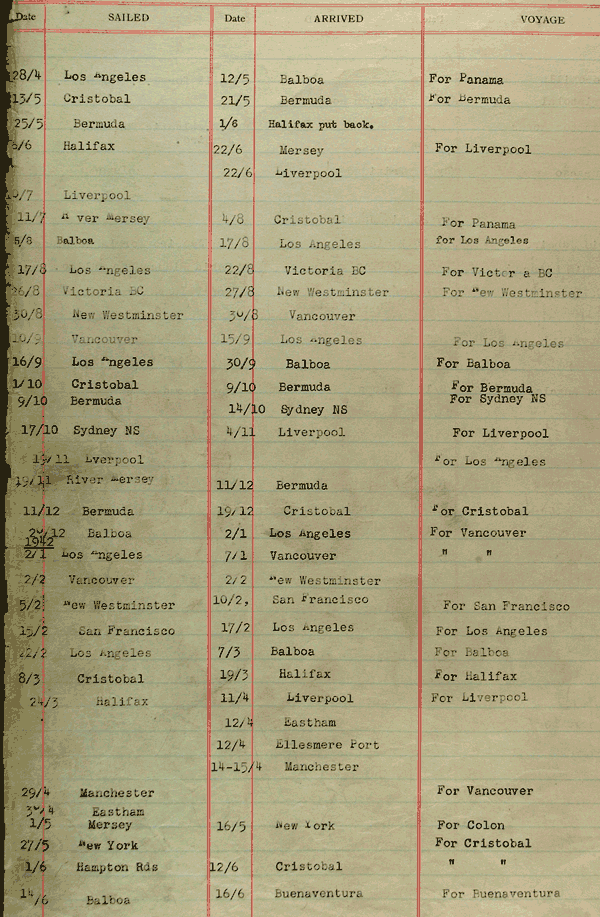 Date SAILED Date ARRIVED VOYAGE
28/4 Los Angeles 12/5 Balboa For Panama
13/5 Cristobal 21/5 Bermuda For Bermuda
25/5 Bermuda 1/6 Halifax put back.
/6 Halifax 22/6 Mersey For Liverpool
22/6 Liverpool
/7 Liverpool
11/7 R ver Mersey 4/8 Cristobal For Panama
5/8 Balboa 17/8 Los Angeles for Los Angeles
17/8 Los Angeles 22/8 Victoria BC For Victor a BC
26/8 Victoria BC 27/8 New Westminster For New Westminster
30/8 New Westminster 30/8 Vancouver
10/9 Vancouver 15/9 Los Angeles For Los Angeles
16/9 Los Angeles 30/9 Balboa For Balboa
1/10 Cristobal 9/10 Bermuda For Bermuda
9/10 Bermuda 14/10 Sydney NS For Sydney NS
17/10 Sydney NS 4/11 Liverpool For Liverpool
19/11 Lverpool For Los Angeles
19/11 River Mersey 11/12 Bermuda
11/12 Bermuda 19/12 Cristobal For Cristobal
20/12 Balboa 2/1 Los Angeles For Vancouver
1942
2/1 Los Angeles 7/1 Vancouver " "
2/2 Vancouver 2/2 New Westminster
5/2 New Westminster 10/2, San Francisco For San Francisco
15/2 San Francisco 17/2 Los Angeles For Los Angeles
22/2 Los Angeles 7/3 Balboa For Balboa
8/3 Cristobal 19/3 Halifax For Halifax
24/3 Halifax 11/4 Liverpool For Liverpool
12/4 Eastham
12/4 Ellesmere Port
14-15/4 Manchester
29/4 Manchester For Vancouver
30/4 Eastham
1/5 Mersey 16/5 New York For Colon
27/5 New York For Cristobal
1/6 Hampton Rds 12/6 Cristobal " "
14/6 Balboa 16/6 Buenaventura For Buenaventura